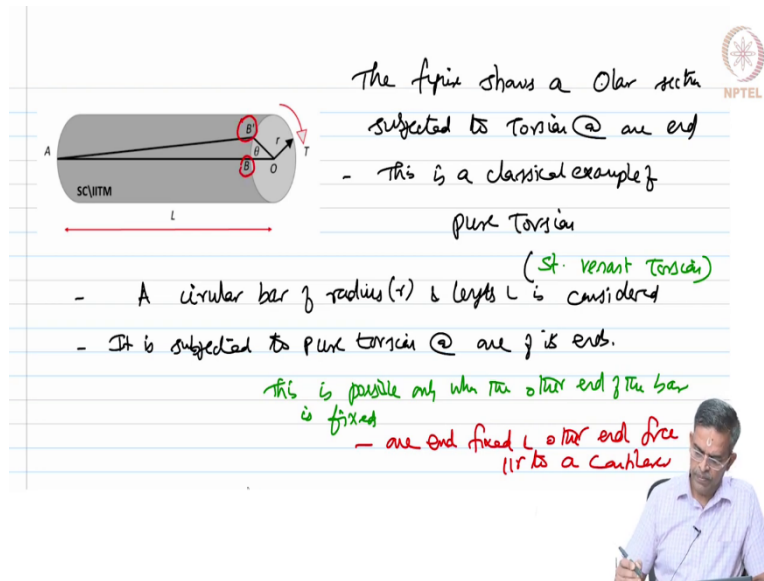 The figure shows a Olar section
NPTEL
subjected to Torsion @ one end
- This is a classical example of
pure Torsion
(St. Venant Torsion)
A
B'
B
θ
r
O
T
SC\IITM
L
- A circular bar of radius (r) & length L is considered
- It is subjected to pure torsion @ one of its ends.
This is possible only when the other end of the bar
is fixed
- one end fixed & other end free
llr to a cantilever